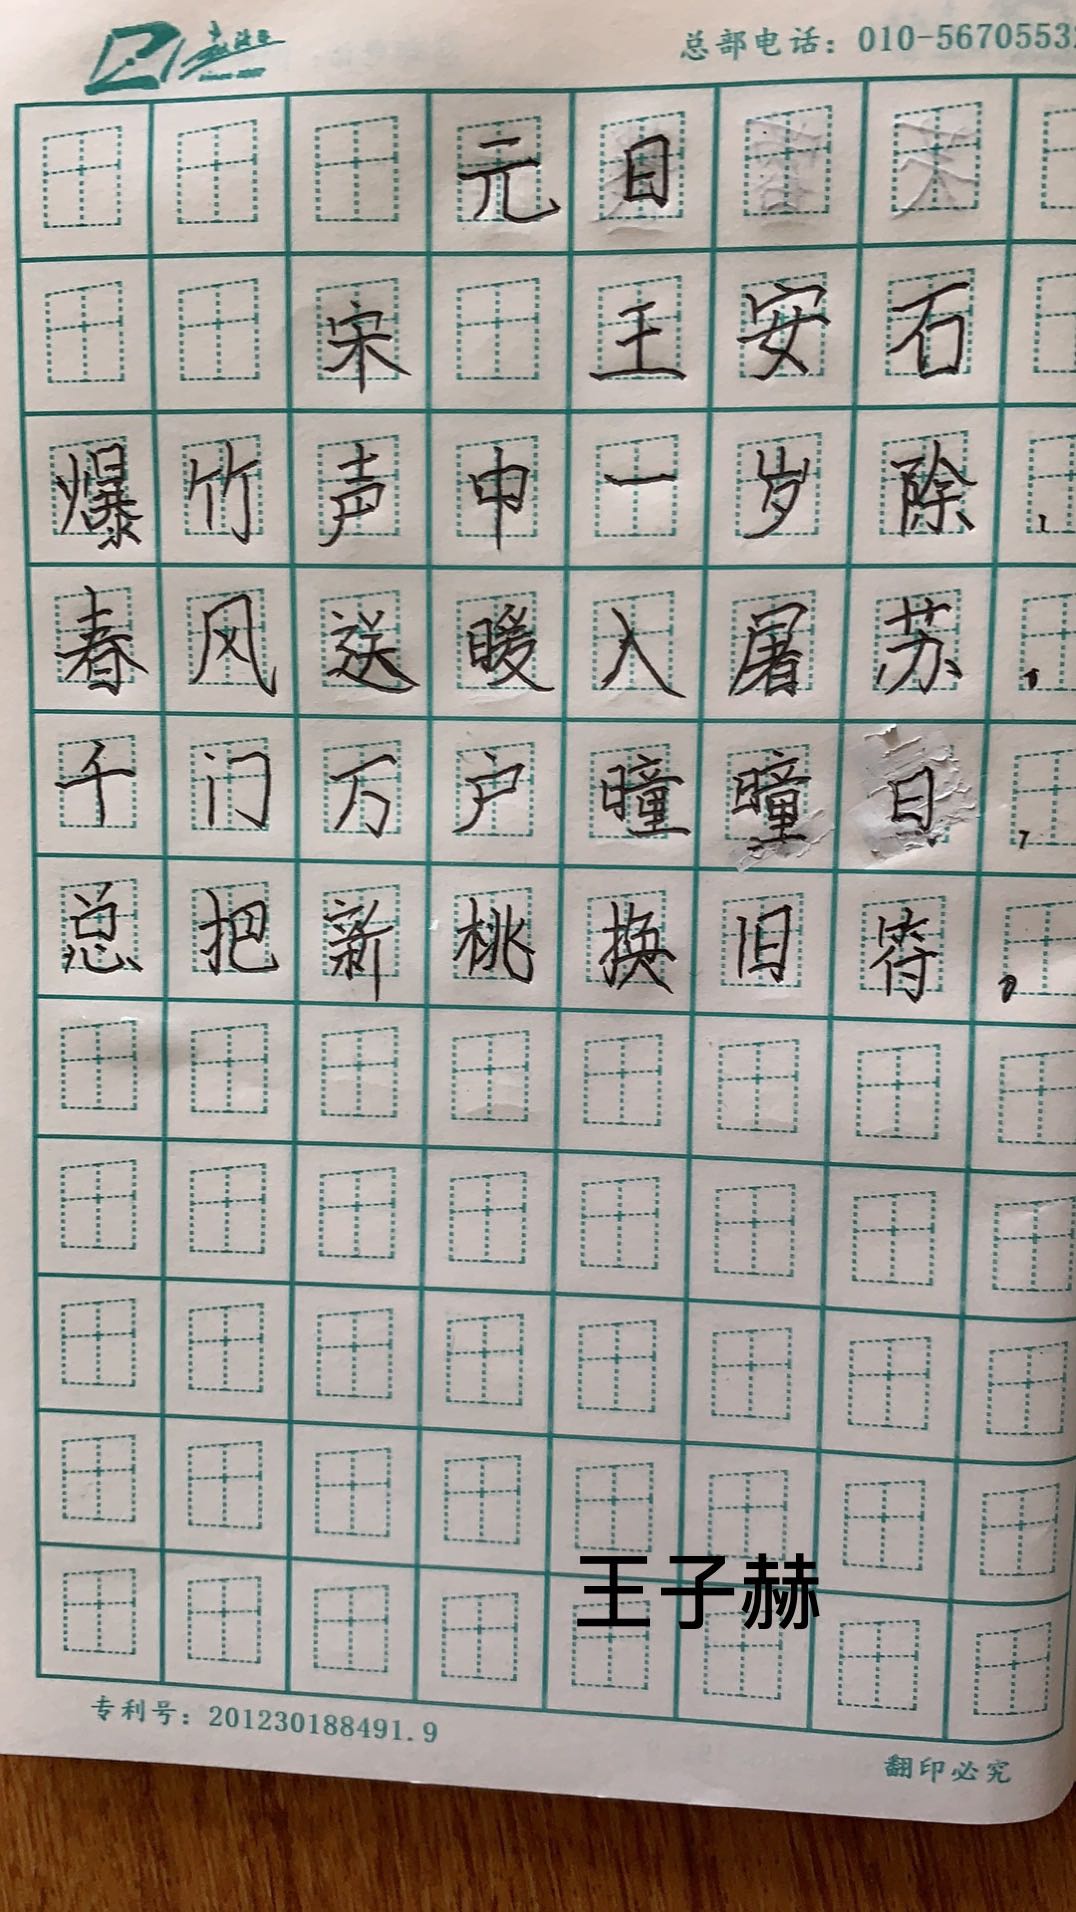 总部电话：010-5670553
元日
宋 王安石
爆竹声中一岁除，
春风送暖入屠苏。
千门万户曈曈日，
总把新桃换旧符。
王子赫
专利号：201230188491.9
翻印必究